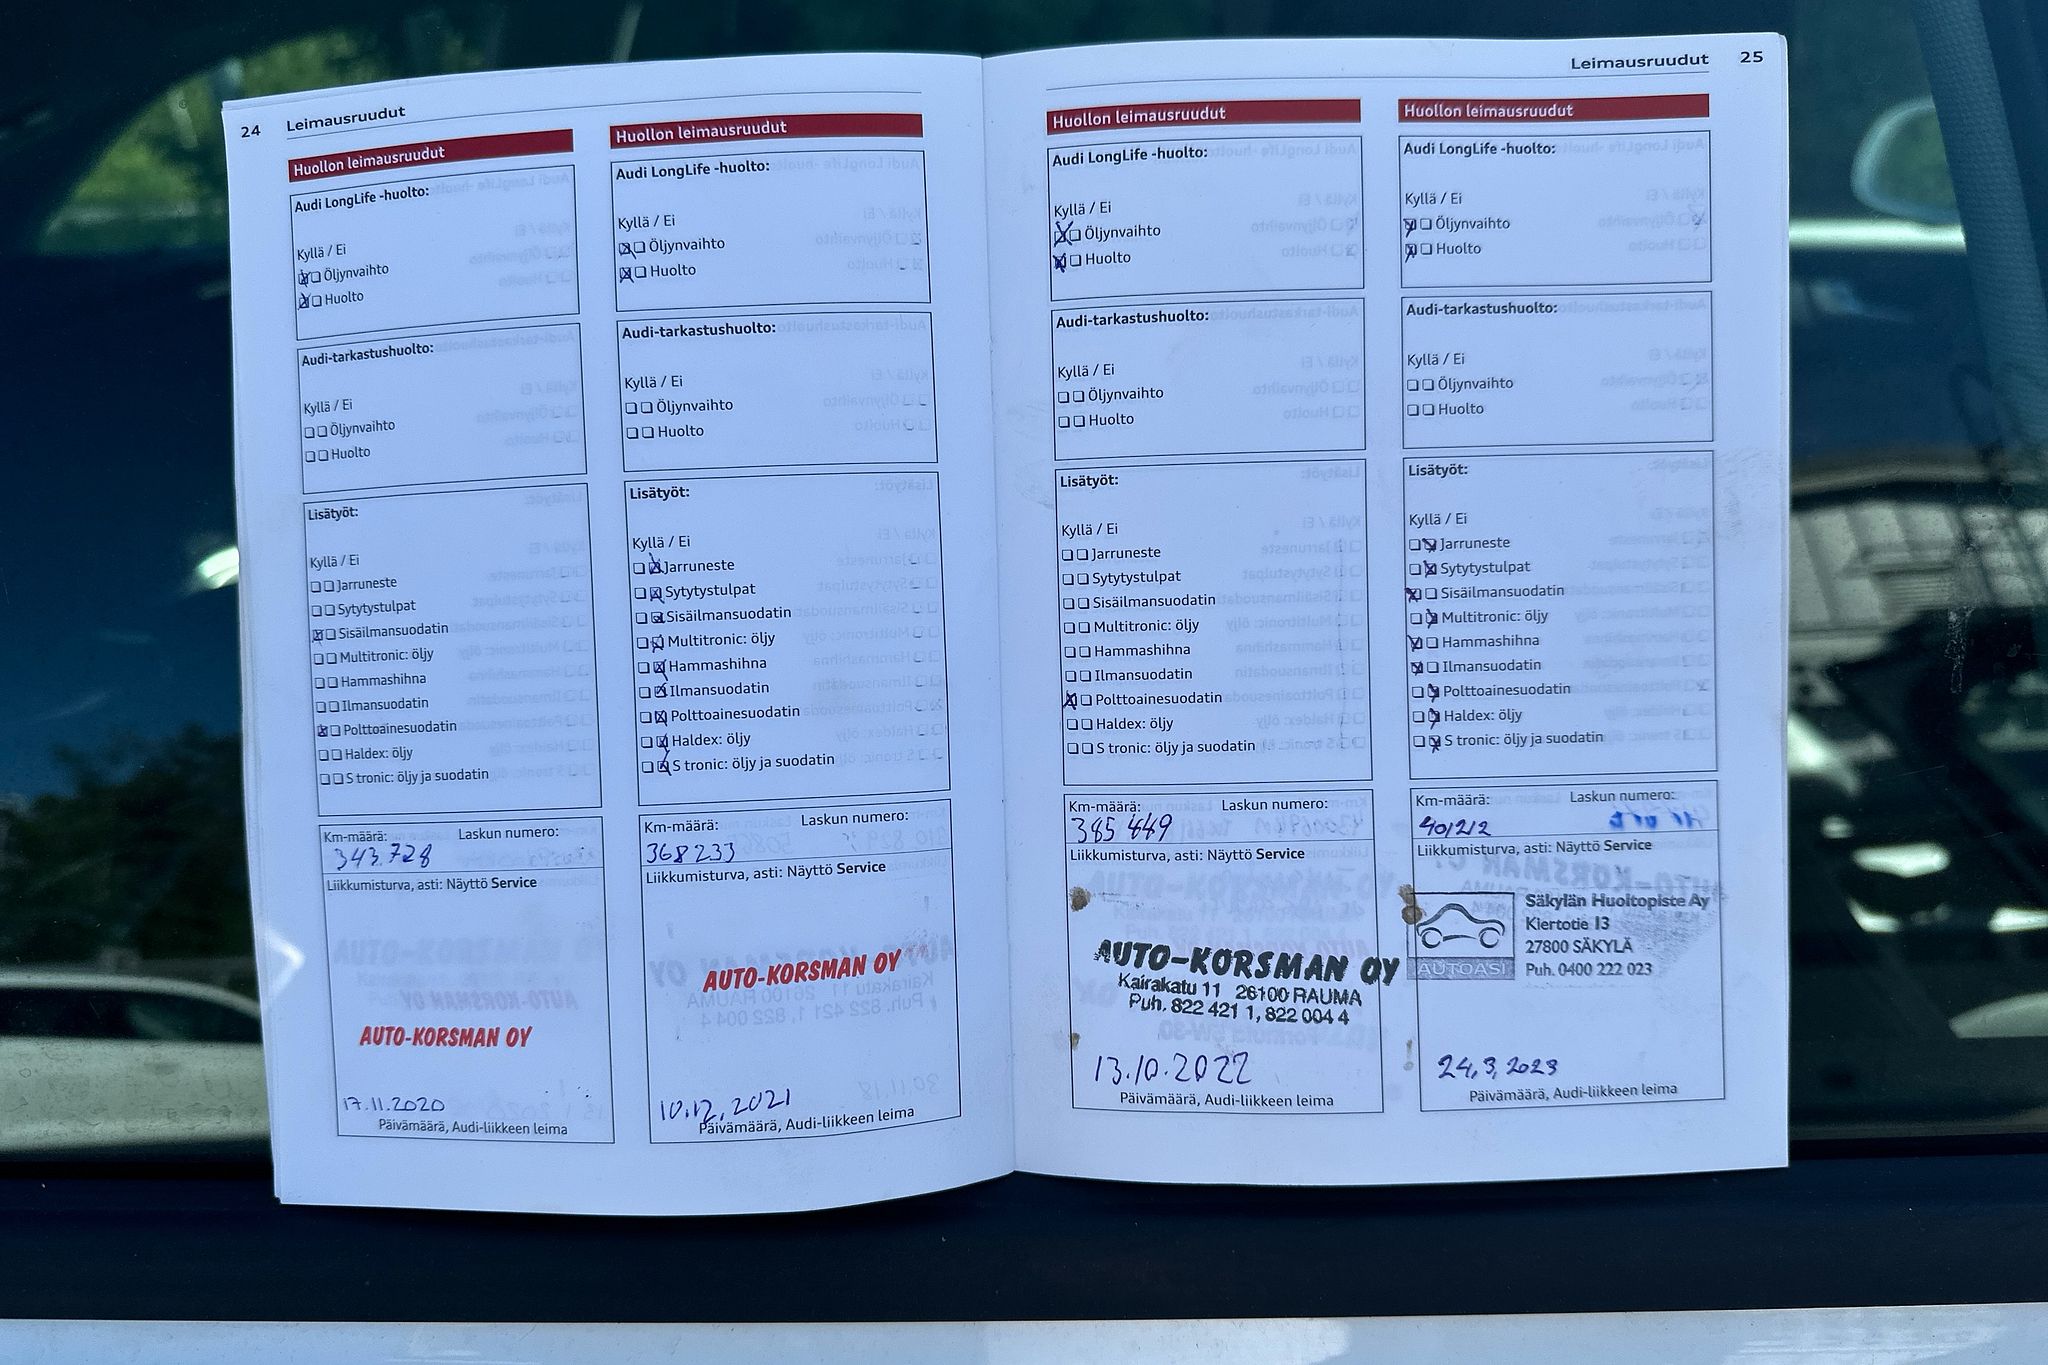 24 Leimausruudut
Huollon leimausruudut
Audi LongLife -huolto:
Kyllä / Ei
Öljynvaihto
Huolto
Audi-tarkastushuolto:
Kyllä / Ei
Öljynvaihto
Huolto
Lisätyöt:
Kyllä / Ei
Jarruneste
Sytytystulpat
Sisäilmansuodatin
Multitronic: öljy
Hammashihna
Ilmansuodatin
Polttoainesuodatin
Haldex: öljy
S tronic: öljy ja suodatin
Km-määrä: Laskun numero:
343.728
Liikkumisturva, asti: Näyttö Service
AUTO-KORSMAN OY
17.11.2020
Päivämäärä, Audi-liikkeen leima
Huollon leimausruudut
Audi LongLife -huolto:
Kyllä / Ei
Öljynvaihto
Huolto
Audi-tarkastushuolto:
Kyllä / Ei
Öljynvaihto
Huolto
Lisätyöt:
Kyllä / Ei
Jarruneste
Sytytystulpat
Sisäilmansuodatin
Multitronic: öljy
Hammashihna
Ilmansuodatin
Polttoainesuodatin
Haldex: öljy
S tronic: öljy ja suodatin
Km-määrä: Laskun numero:
368233
Liikkumisturva, asti: Näyttö Service
AUTO-KORSMAN OY
10.12.2021
Päivämäärä, Audi-liikkeen leima
Leimausruudut 25
Huollon leimausruudut
Audi LongLife -huolto:
Kyllä / Ei
Öljynvaihto
Huolto
Audi-tarkastushuolto:
Kyllä / Ei
Öljynvaihto
Huolto
Lisätyöt:
Kyllä / Ei
Jarruneste
Sytytystulpat
Sisäilmansuodatin
Multitronic: öljy
Hammashihna
Ilmansuodatin
Polttoainesuodatin
Haldex: öljy
S tronic: öljy ja suodatin
Km-määrä: Laskun numero:
385
Liikkumisturva, asti: Näyttö Service
AUTO-KORSMAN OY
Kairakatu 11 26100 RAUMA
Puh. 822 421 1, 822 004 4
13.10.2022
Päivämäärä, Audi-liikkeen leima
Huollon leimausruudut
Audi LongLife -huolto:
Kyllä / Ei
Öljynvaihto
Huolto
Audi-tarkastushuolto:
Kyllä / Ei
Öljynvaihto
Huolto
Lisätyöt:
Kyllä / Ei
Jarruneste
Sytytystulpat
Sisäilmansuodatin
Multitronic: öljy
Hammashihna
Ilmansuodatin
Polttoainesuodatin
Haldex: öljy
S tronic: öljy ja suodatin
Km-määrä: Laskun numero:
401212
Liikkumisturva, asti: Näyttö Service
Säkylän Huoltopiste Ay
Kiertotie 13
27800 SÄKYLÄ
Puh. 0400 222 023
AUTOASI
24.3.2023
Päivämäärä, Audi-liikkeen leima